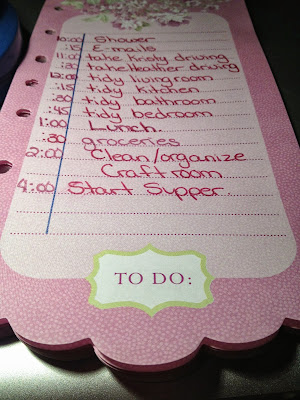 10:00 Shower
:15 E-mails
11:00 take Kristy driving
:30 take Heather driving
12:00 tidy living room
:15 tidy kitchen
:30 tidy bathroom
:45 tidy bedroom
1:00 Lunch.
:30 groceries
2:00 Clean/organize
Craft room
4:00 Start Supper.
TO DO: